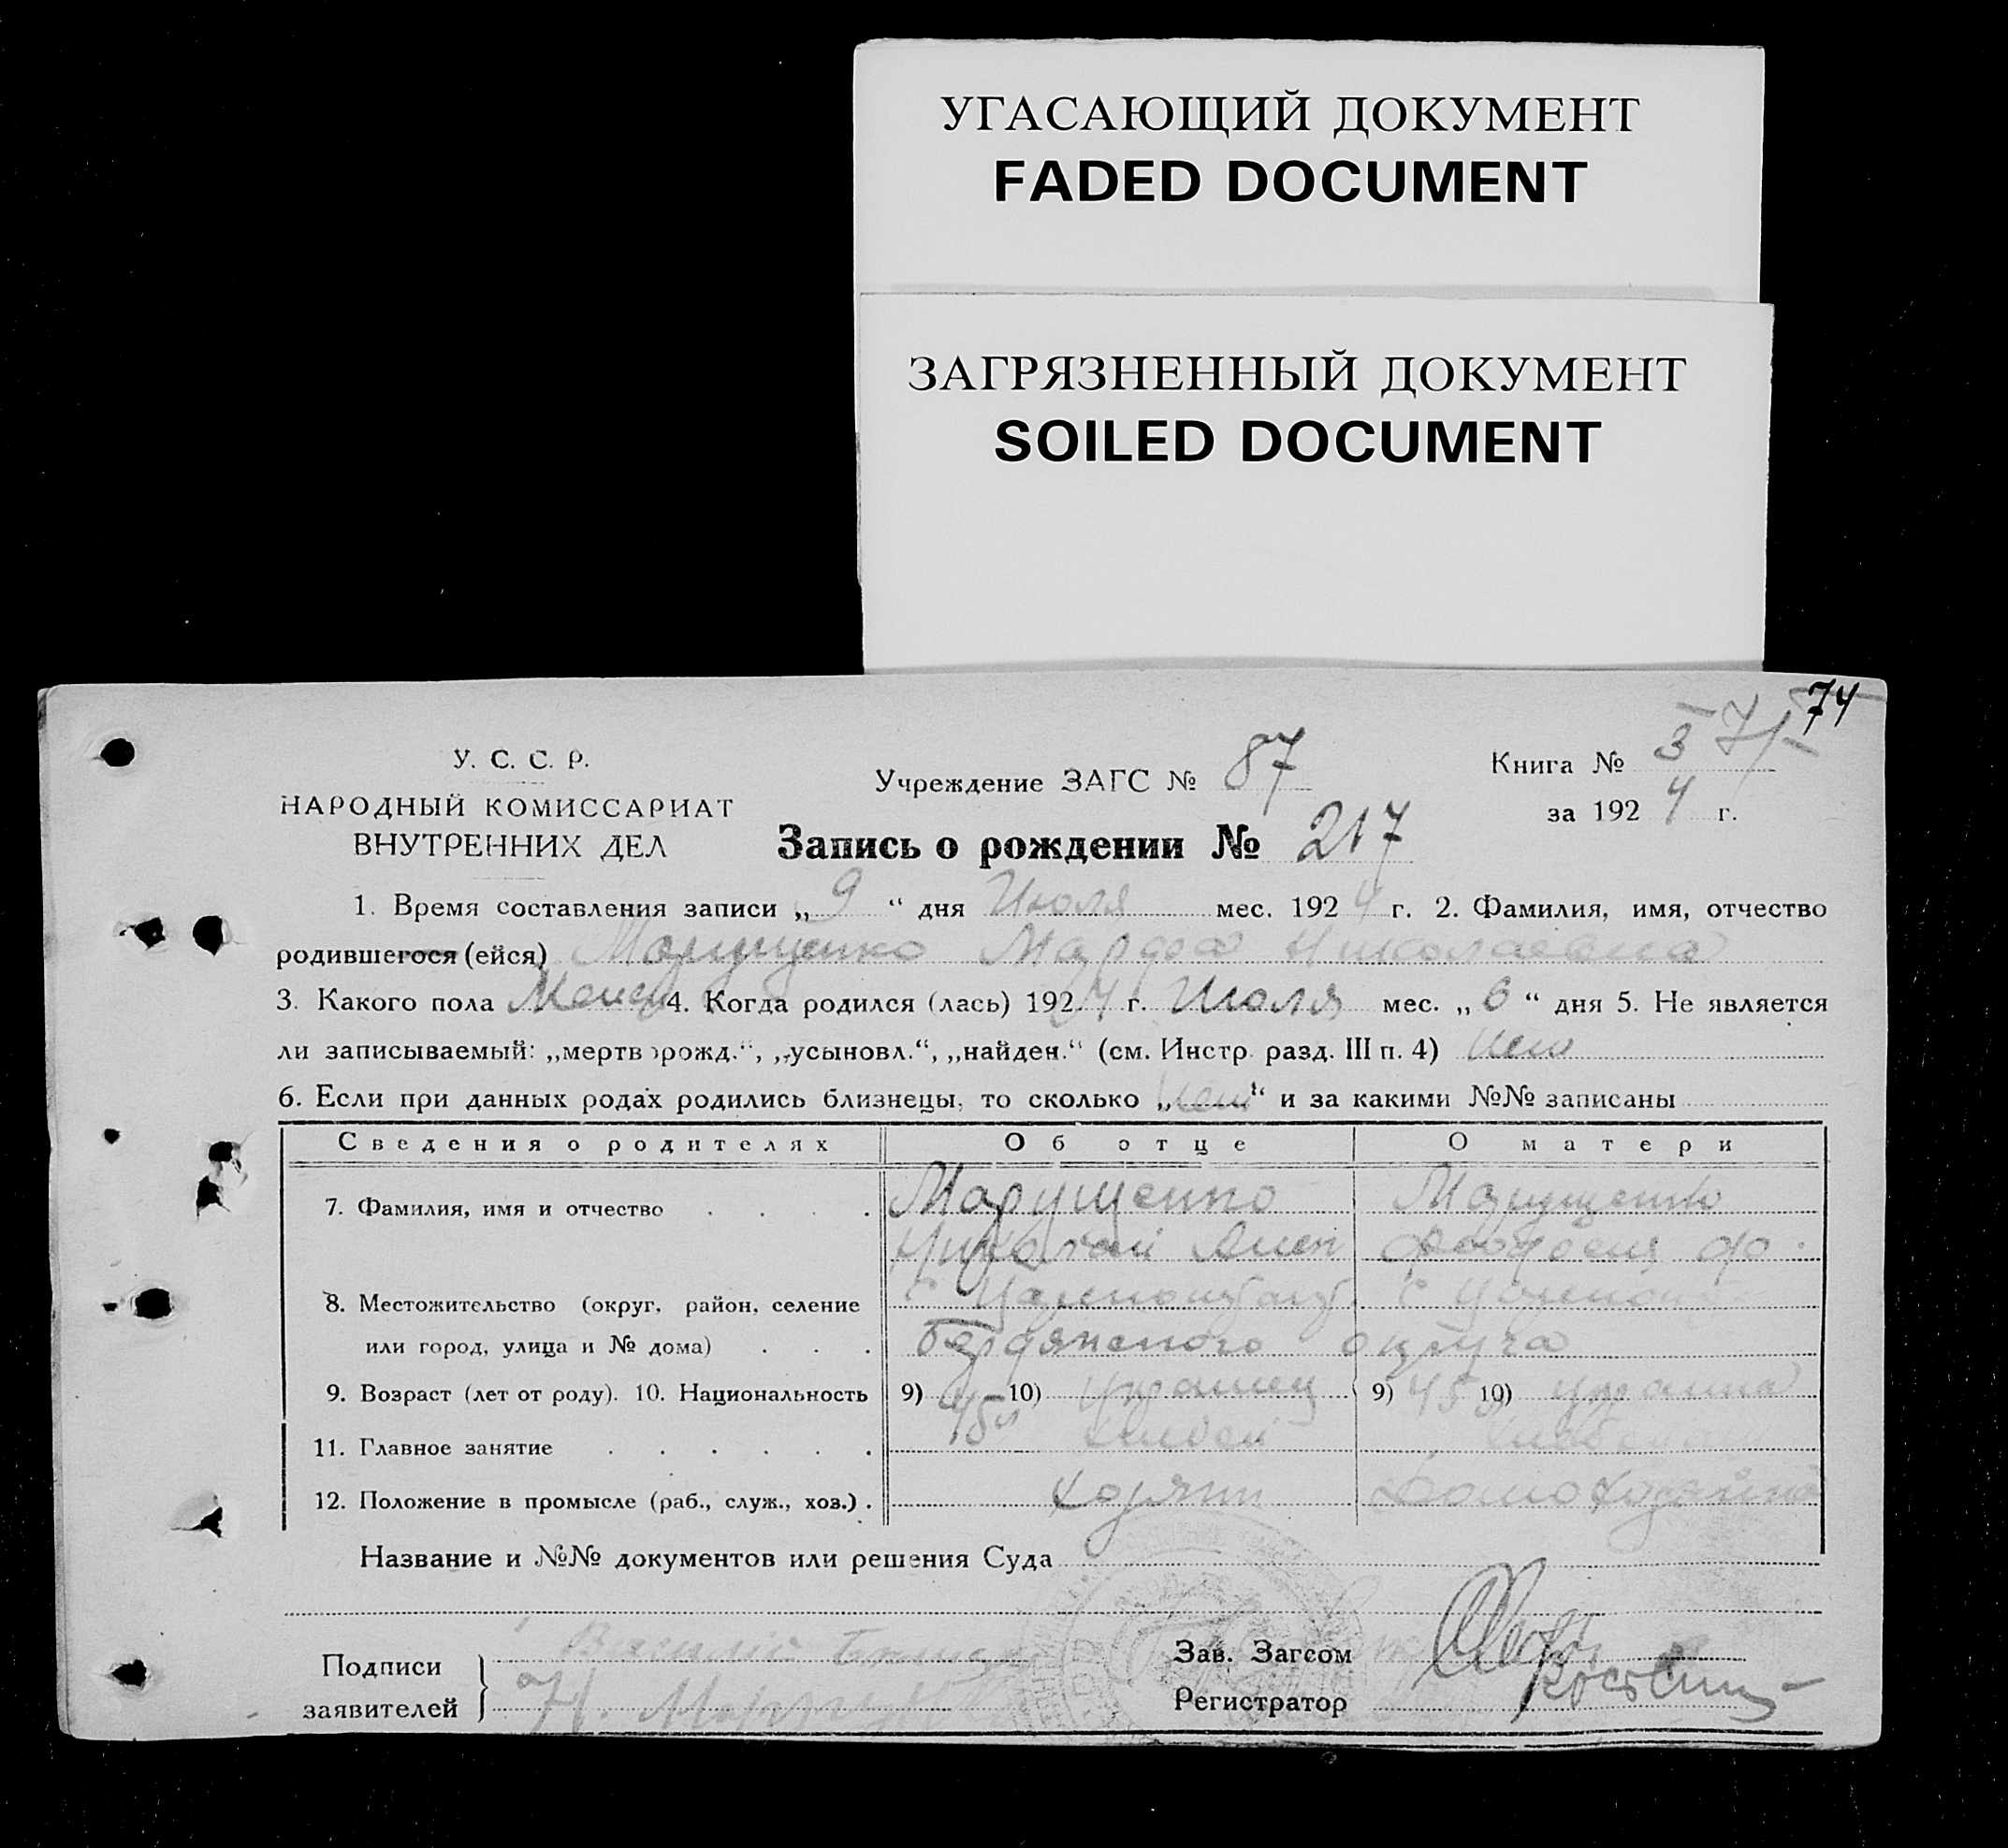 УГАСАЮЩИЙ ДОКУМЕНТ
FADED DOCUMENT
ЗАГРЯЗНЕННЫЙ ДОКУМЕНТ
SOILED DOCUMENT
74
У. С. С. Р.
НАРОДНЫЙ КОМИССАРИАТ
ВНУТРЕННИХ ДЕЛ
Учреждение ЗАГС № 87
Книга № 3
за 1924 г.
Запись о рождении № 217
1. Время составления записи „9“ дня Июля мес. 1924 г. 2. Фамилия, имя, отчество
родившегося (ейся) Марущенко Марфа Николаевна
3. Какого пола Женск 4. Когда родился (лась) 1924 г. Июля мес. „6“ дня 5. Не является
ли записываемый: „мертворожд.“, „усыновл.“, „найден.“ (см. Инстр. разд. III п. 4) нет
6. Если при данных родах родились близнецы, то сколько „нет“ и за какими №№ записаны
Сведения о родителях Об отце О матери
7. Фамилия, имя и отчество Марущенко Марущенко
Николай Феодосия Ф.
8. Местожительство (округ, район, селение с с
или город, улица и № дома) Бердянского округа
9. Возраст (лет от роду). 10. Национальность 9) 45 10) Украинец 9) 45 10)
11. Главное занятие
12. Положение в промысле (раб., служ., хоз.) Домохозяйка
Название и №№ документов или решения Суда
Подписи
заявителей
Н.
Зав. Загсом
Регистратор